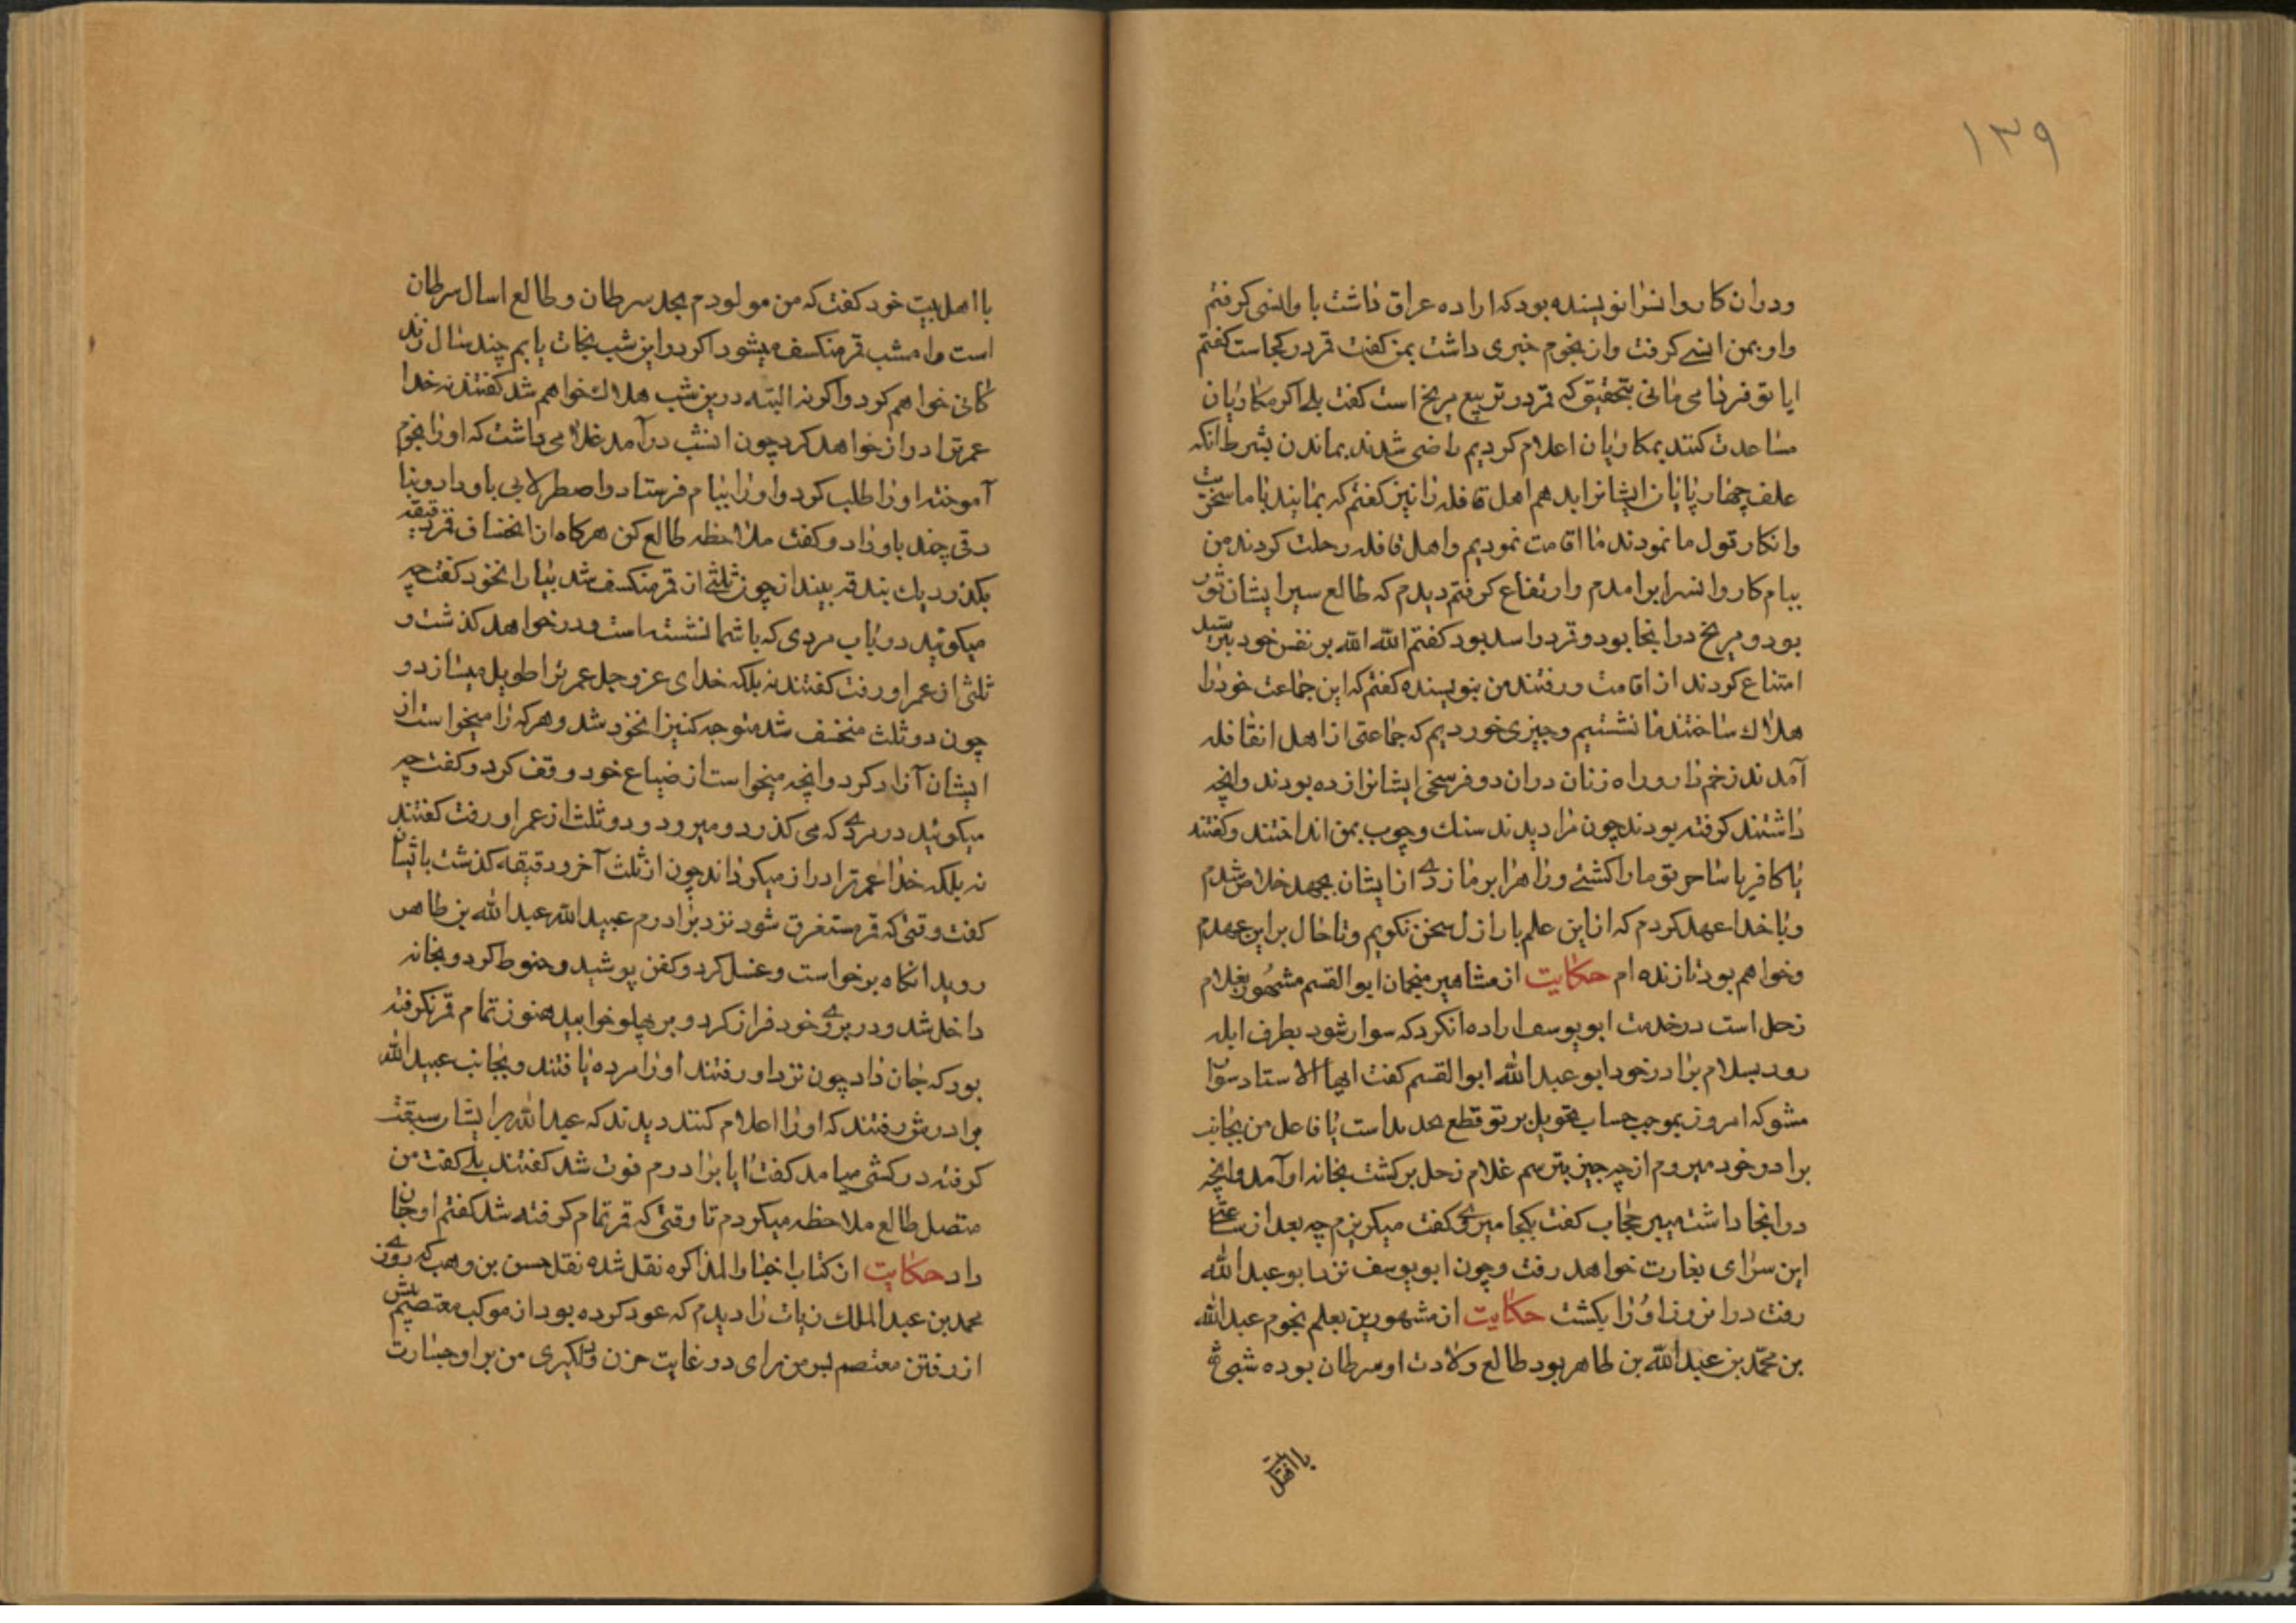 ۱۳۹
ودران کاروانسرا نویسنده بود که اراده عراق داشت با وانسی کرفتم
واو بمن انسے کرفت وان نجوم خبری داشت بمن کفت قمر در کجاست کفتم
ایا تو فرنامی مانی بتحقیق که قمر در تربیع مریخ است کفت بلے اکر مکاریان
مساعدت کنند بمکاریان اعلام کردیم راضی شدند بماندن بشرط انکه
علف چهارپایان ایشانرا بدهم اهل قافله را نیز کفتم که بمانند با ما سخریت
وانکار قول ما نمودند ما اقامت نمودیم واهل قافله رحلت کردند من
ببام کاروانسرا برامدم وارتفاع کرفتم دیدم که طالع سیر ایشان ثور
بود و مریخ درانجا بود و قمر در اسد بود کفتم الله الله بر نفس خود بترسید
امتناع کردند از اقامت ورفتند من بنویسنده کفتم که این جماعت خود را
هلاك ساختند ما نشستیم وچیزی خوردیم که جماعتی از اهل انقافله
آمدند زخم دار وراه زنان دران دو فرسخی ایشانرا زده بودند وانچه
داشتند کرفته بودند چون مرا دیدند سنك وچوب بمن انداختند وکفتند
یا کافر یا ساحر تو ما را کشتے وراه را بر ما زدے از ایشان بجهد خلاص شدم
وبا خدا عهد کردم که ازین علم با رازل سخن نکویم وتا حال براین عهدم
وخواهم بود تا زنده ام حکایت از مشاهیر منجمان ابوالقسم مشهور بغلام
زحل است در خدمت ابو یوسف اراده انکرد که سوار شود بطرف ابله
رود بسلام برادر خود ابو عبدالله ابوالقسم کفت ایها الاستاد سوار
مشو که امروز بموجب حساب تحویل بر تو قطع حدید است یا فاعل من بجانب
برادر خود میروم از چه چیز بترسم غلام زحل برکشت بخانه او آمد وانچه
درانجا داشت میبر حجاب کفت بکجا میروے کفت میکریزم چه بعد از ساعتے
این سرای بغارت خواهد رفت وچون ابو یوسف نزد ابو عبدالله
رفت درانروز او را بکشت حکایت از مشهورین بعلم نجوم عبدالله
بن محمد بن عبدالله بن طاهر بود طالع ولادت او سرطان بوده شبی
با اهل
با اهل بیت خود کفت که من مولودم بحد سرطان وطالع اسال سرطان
است وامشب قمر منکسف میشود اکر دراین شب نجات یابم چند سال زند
کانی خواهم کرد واکر نه البته درین شب هلاك خواهم شد کفتند نه خدا
عمر ترا دراز خواهد کرد چون انشب درآمد غلامی داشت که او را نجوم
آموخته او را طلب کرد واو را ببام فرستاد واصطرلابی باو داد وبنا
دقی چند باو داد وکفت ملاحظه طالع کن هرکاه از انخساف قمر دقیقه
بکذرد یك بندقه بینداز چون ثلثے از قمر منکسف شد بیاران خود کفت چه
میکوئید در باب مردی که با شما نشسته است ودر خواهد کذشت و
ثلثی از عمر او رفت کفتند نه بلکه خدای عز وجل عمر ترا طویل میسازد و
چون دو ثلث منخسف شد متوجه کنیزان خود شد وهر که را میخواست از
ایشان آزاد کرد وانچه میخواست از ضیاع خود وقف کرد وکفت چه
میکوئید در مردے که می کذرد ومیرود و دو ثلث از عمر او رفت کفتند
نه بلکه خدا عمر ترا دراز میکرداند چون از ثلث آخر دو دقیقه کذشت با ایشان
کفت وقتی که قمر مستغرق شود نزد برادرم عبیدالله عبدالله بن طاهر
روید انکاه برخواست وغسل کرد وکفن پوشید وحنوط کرد وبخانه
داخل شد ودر بروے خود فراز کرد وبر پهلو خوابید هنوز تمام قمر نکرفته
بود که جان داد چون نزد او رفتند او را مرده یافتند وبجانب عبیدالله
برادرش رفتند که او را اعلام کنند دیدند که عبیدالله بر ایشان سبقت
کرفته در کشتی میامد کفت ایا برادرم فوت شد کفتند بلے کفت من
متصل طالع ملاحظه میکردم تا وقتی که قمر تمام کرفته شد کفتم او جان
داد حکایت از کتاب اخبار المذاکره نقل شده نقل حسن بن وهب که روزے
محمد بن عبد الملك زیات را دیدم که عود کرده بود از موکب معتصم پیش
از رفتن معتصم بسر من رای در غایت حزن ودلکیری من بر او جسارت